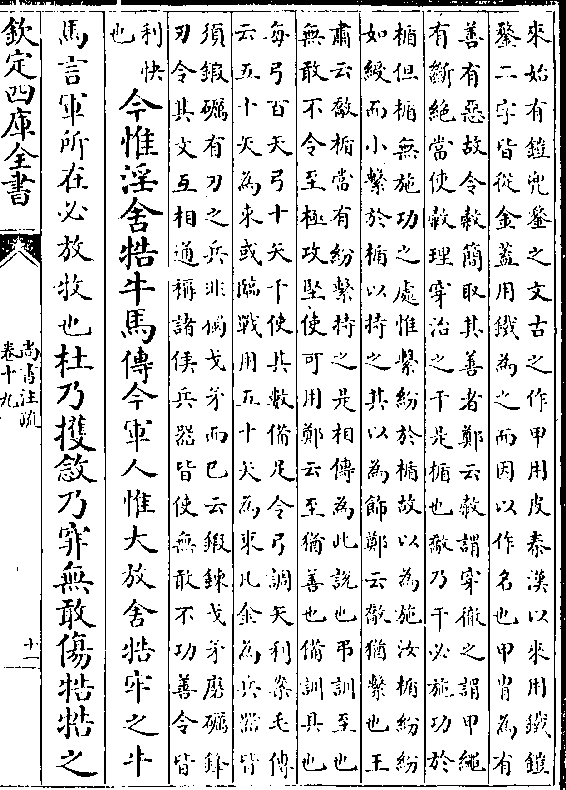 來始有鎧兜鍪之文古之作甲用皮秦漢以來用鐵鎧
鍪二字皆從金蓋用鐵為之而因以作名也甲胄為有
善有惡故令敹簡取其善者鄭云敹謂穿徹之謂甲繩
有斷絶當使敹理穿治之干是楯也敿乃干必施功於
楯但楯無施功之處惟繫紛於楯故以為施汝楯紛紛
如綬而小繫於楯以持之其以為飾鄭云敿猶繫也王
肅云敿楯當有紛繫持之是相傳為此説也弔訓至也
無敢不令至極攻堅使可用鄭云至猶善也備訓具也
每弓百矢弓十矢千使其數備足令弓調矢利案毛傳
云五十矢為束或臨戰用五十矢為束凡金為兵器皆
須鍛礪有刃之兵非獨戈矛而已云鍛鍊戈矛磨礪鋒
刃令其文互相通稱諸侯兵器皆使無敢不功善令皆
利快
也 今惟淫舍牿牛馬傳今軍人惟大放舍牿牢之牛
馬言軍所在必放牧也杜乃擭敜乃穽無敢傷牿牿之
欽定四庫全書
尚書注疏
卷十九
十一